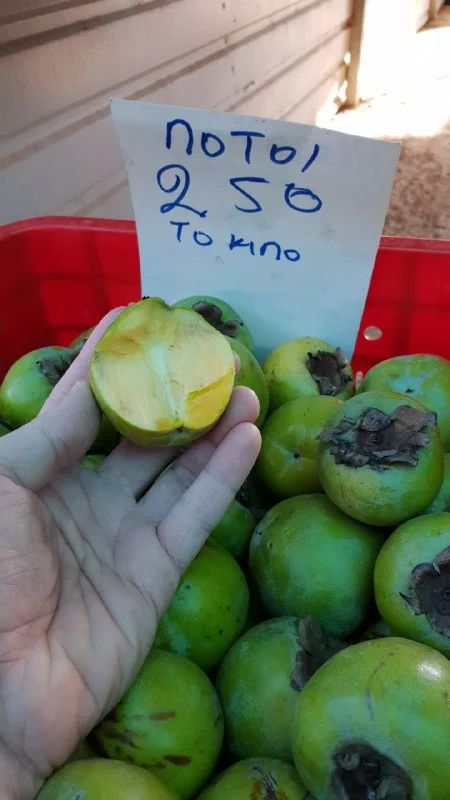 ΠΟΤΟΙ
2 50
ΤΟ ΚΙΛΟ